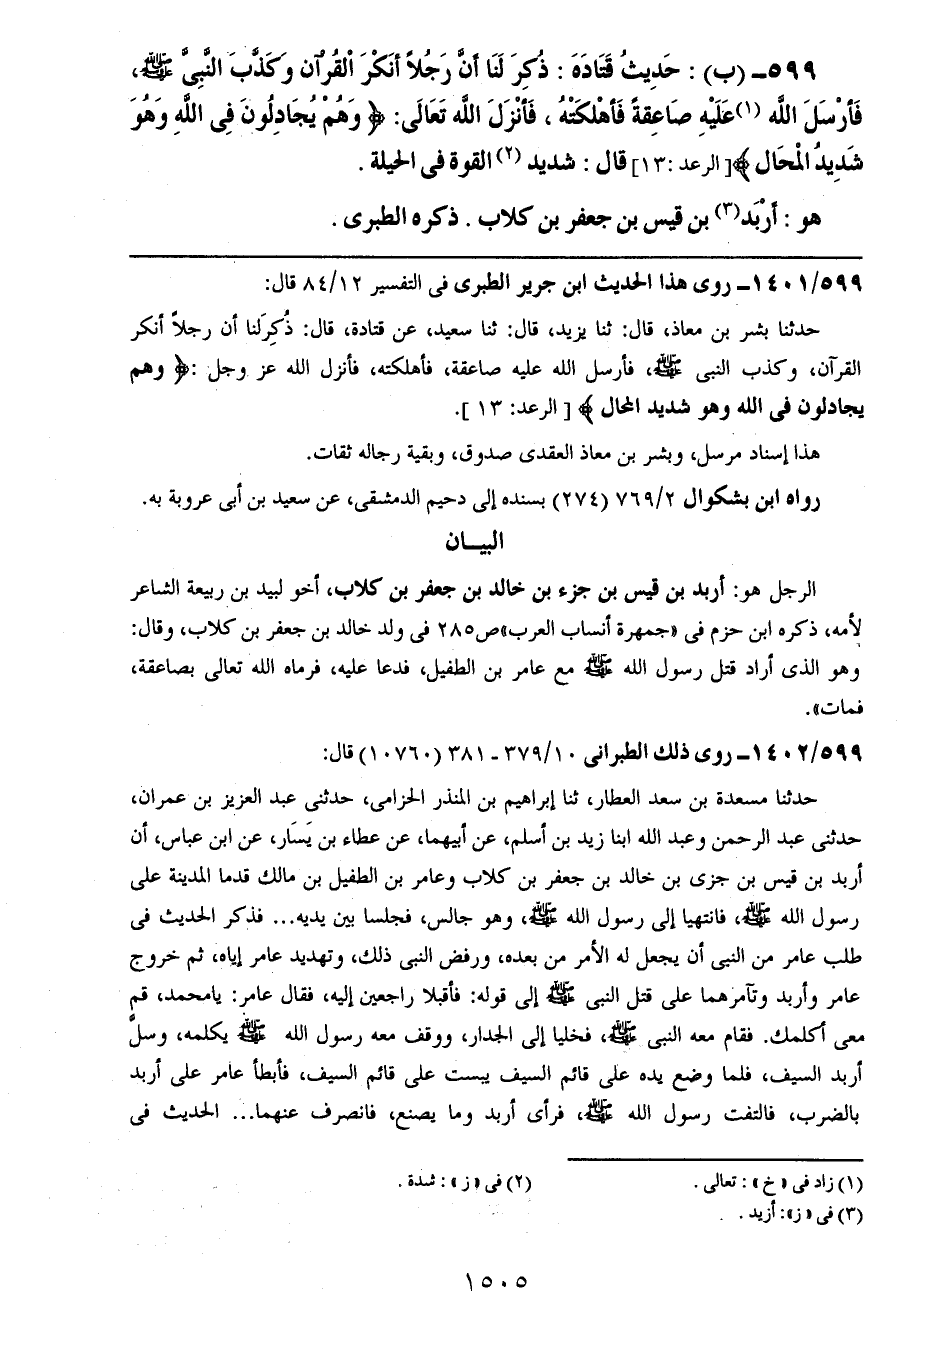 ٥٩٩ـ (ب) : حَدِيثُ قَتَادَةَ : ذُكِرَ لَنَا أَنَّ رَجُلاً أَنكَرَ الْقُرْآن وَكَذَّبَ النَّبِىَّ ﷺ،
فَأَرْسَلَ اللَّه (١)عَلَيْهِ صَاعِقَةً فَأَهْلكَتْهُ ، فَأَنْزَلَ اللَّه تَعَالَى: ﴿ وَهُمْ يُجَادِلُونَ فِى اللَّهِ وَهُوَ
شَدِيدُ الْمحَال ﴾[ الرعد :١٣] قال : شديد (٢) القوة فى الحيلة .
هو : أَرْبَد(٣) بن قيس بن جعفر بن كلاب . ذكره الطبرى .
١٤٠١/٥٩٩ـ روى هذا الحديث ابن جرير الطبرى فى التفسير ٨٤/١٢ قال:
حدثنا بشر بن معاذ، قال: ثنا يزيد، قال: ثنا سعيد، عن قتادة، قال: ذُكِرَلنا أن رجلاً أنكر
القرآن، وكذب النبى ﷺ، فأرسل الله عليه صاعقة، فأهلكته، فأنزل الله عز وجل :﴿ وهم
يجادلون فى الله وهو شديد المحال ﴾ [ الرعد: ١٣ ].
هذا إسناد مرسل، وبشر بن معاذ العقدى صدوق، وبقية رجاله ثقات.
رواه ابن بشكوال ٧٦٩/٢ (٢٧٤) بسنده إلى دحيم الدمشقى، عن سعيد بن أبى عروبة به.
البيـــان
الرجل هو: أربد بن قيس بن جزء بن خالد بن جعفر بن كلاب، أخو لبيد بن ربيعة الشاعر
لأمه، ذكره ابن حزم فى «جمهرة أنساب العرب»ص٢٨٥ فى ولد خالد بن جعفر بن كلاب، وقال:
وهو الذى أراد قتل رسول الله ﷺ مع عامر بن الطفيل، فدعا عليه، فرماه الله تعالى بصاعقة،
فمات».
١٤٠٢/٥٩٩ـ روى ذلك الطبرانى ٣٧٩/١٠ ـ ٣٨١ (١٠٧٦٠) قال:
حدثنا مسعدة بن سعد العطار، ثنا إبراهيم بن المنذر الحزامى، حدثنى عبد العزيز بن عمران،
حدثنى عبد الرحمن وعبد الله ابنا زيد بن أسلم، عن أبيهما، عن عطاء بن يَسَار، عن ابن عباس، أن
أربد بن قيس بن جزى بن خالد بن جعفر بن كلاب وعامر بن الطفيل بن مالك قدما المدينة على
رسول الله ﷺ، فانتهيا إلى رسول الله ﷺ، وهو جالس، فجلسا بين يديه... فذكر الحديث فى
طلب عامر من النبى أن يجعل له الأمر من بعده، ورفض النبى ذلك، وتهديد عامر إياه، ثم خروج
عامر وأربد وتآمرهما على قتل النبى ﷺ إلى قوله: فأقبلا راجعين إليه، فقال عامر: يامحمد، قم
معى أكلمك. فقام معه النبى ﷺ، فخليا إلى الجدار، ووقف معه رسول الله ﷺ يكلمه، وسلَّ
أربد السيف، فلما وضع يده على قائم السيف يبست على قائم السيف، فأبطأ عامر على أربد
بالضرب، فالتفت رسول الله ﷺ، فرأى أربد وما يصنع، فانصرف عنهما... الحديث فى
(١) زاد فى «خ» : تعالى .
(٢) فى «ز» : شدة .
(٣) فى «ز»: أزيد .
١٥٠٥